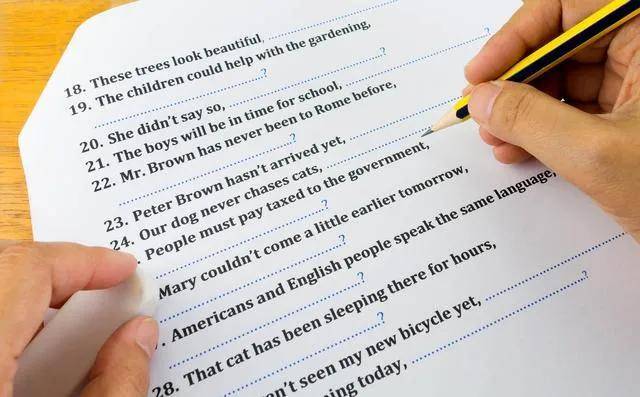 18. These trees look beautiful, ....................
19. The children could help with the gardening,
....................?
20. She didn't say so, ....................?
21. The boys will be in time for school, ....................?
22. Mr. Brown has never been to Rome before,
....................?
23. Peter Brown hasn't arrived yet, ....................
24. Our dog never chases cats, ....................
. People must pay taxed to the government,
....................?
Mary couldn't come a little earlier tomorrow,
....................?
. Americans and English people speak the same language,
....................?
28. That cat has been sleeping there for hours,
....................?
n't seen my new bicycle yet, ....................
ing today, ....................?